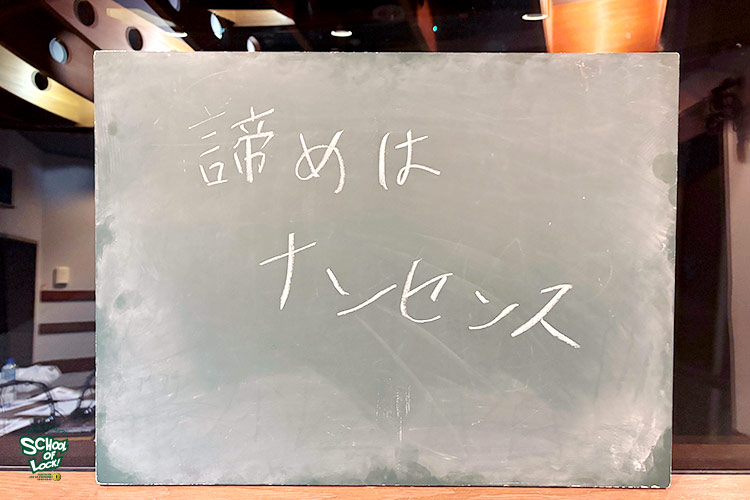 諦めは
ナンセンス
SCHOOL
OF
LOCK!